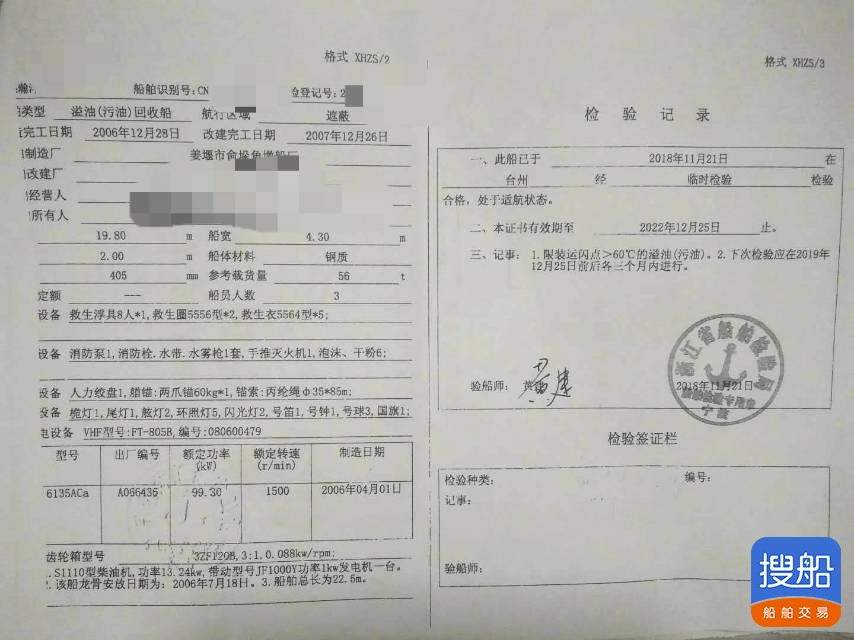 格式 XHZS/2
船舶识别号:CN
检登记号:2
类型 溢油(污油)回收船 航行区域 遮蔽
完工日期 2006年12月28日 改建完工日期 2007年12月26日
制造厂 姜堰市俞垛角墩船厂
改建厂
经营人
所有人
19.80 m 船宽 4.30 m
2.00 m 船体材料 钢质
405 mm 参考载货量 56 t
定额 --- 船员人数 3
设备 救生浮具8人*1,救生圈5556型*2,救生衣5564型*5;
设备 消防泵1,消防栓.水带.水雾枪1套,手推灭火机1,泡沫、干粉6;
设备 人力绞盘1,艏锚:两爪锚60kg*1,锚索:丙纶绳φ35*85m;
设备 桅灯1,尾灯1,舷灯2,环照灯5,闪光灯2,号笛1,号钟1,号球3,国旗1;
电设备 VHF型号:FT-805B,编号:080600479
型号 出厂编号 额定功率(kW) 额定转速(r/min) 制造日期
6135ACa A066436 99.30 1500 2006年04月01日
齿轮箱型号 3ZF120B,3:1,0.088kw/rpm;
.S1110型柴油机,功率13.24kw,带动型号JF1000Y功率1kw发电机一台。
.该船龙骨安放日期为:2006年7月18日。3.船舶总长为22.5m。
格式 XHZS/3
检验记录
一、此船已于 2018年11月21日 在
台州 经 临时检验 检验
合格,处于适航状态。
二、本证书有效期至 2022年12月25日 止。
三、记事: 1.限装运闪点>60℃的溢油(污油)。2.下次检验应在2019年
12月25日前后各三个月内进行。
浙江省船舶检验局
验船师: 黄建
2018年11月21日
船舶检验专用章
宁波
检验签证栏
检验种类: 编号:
记事:
验船师:
搜船
船舶交易